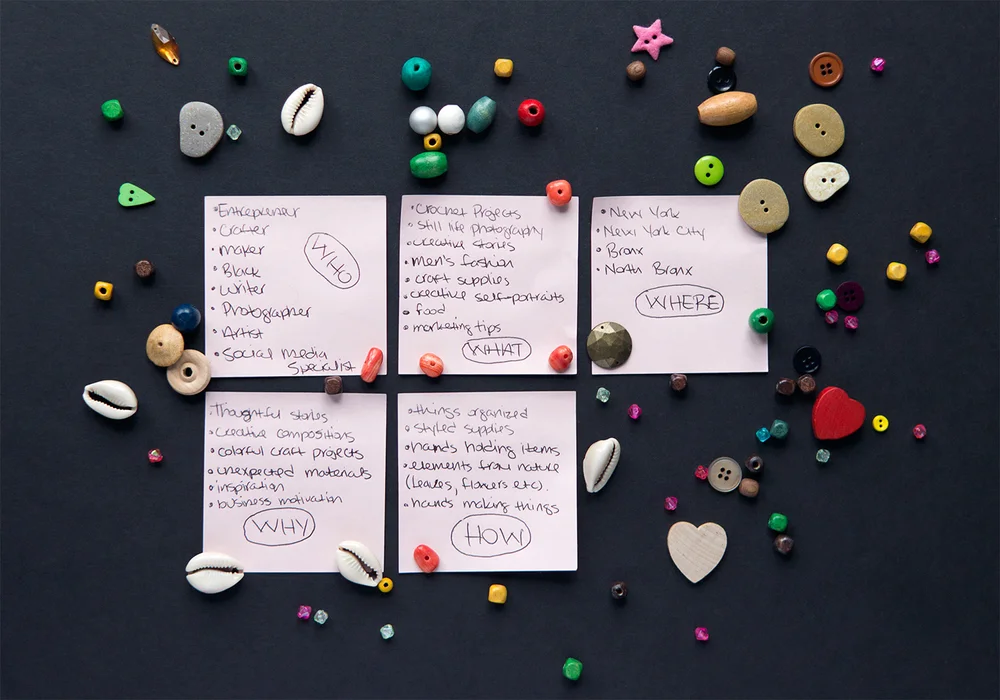 • Entrepreneur
• Crafter
• Maker
• Black
• Writer
• Photographer
• Artist
• Social Media
Specialist
WHO
• Crochet Projects
• Still life Photography
• creative stories
• men's fashion
• craft supplies
• creative self-portraits
• food
• marketing tips
WHAT
• New York
• New York City
• Bronx
• North Bronx
WHERE
• Thoughtful stories
• Creative compositions
• colorful craft projects
• unexpected materials
• inspiration
• business motivation
WHY
• things organized
• styled supplies
• hands holding items
• elements from nature
(leaves, flowers etc).
• hands making things
HOW